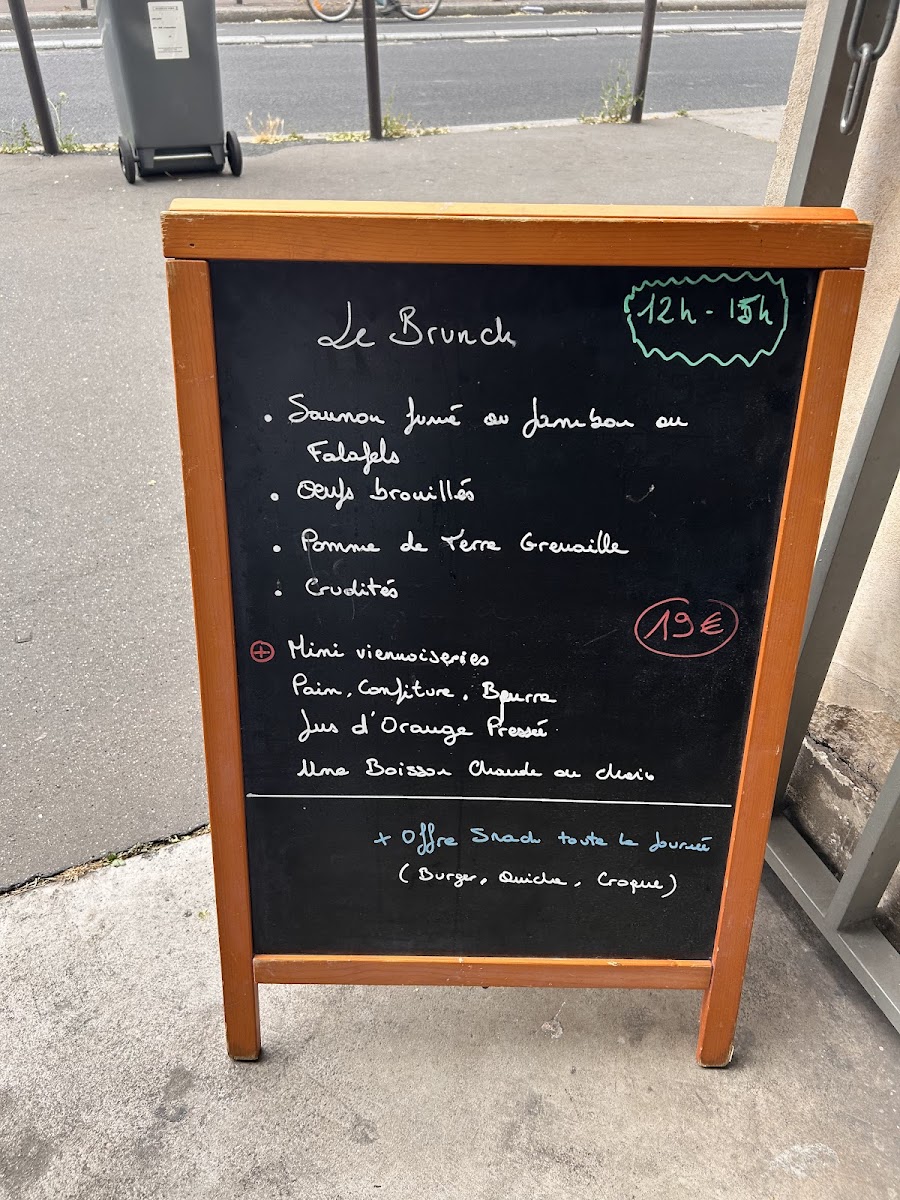 Le Brunch
12h - 15h
• Saumon fumé ou Jambon ou
Falafels
• Oeufs brouillés
• Pomme de Terre Grenaille
• Crudités
19€
+ Mini viennoiseries
Pain, Confiture, Beurre
Jus d'Orange Pressée
Une Boisson Chaude au choix
+ Offre Snack toute la Journée
(Burger, Quiche, Croque)